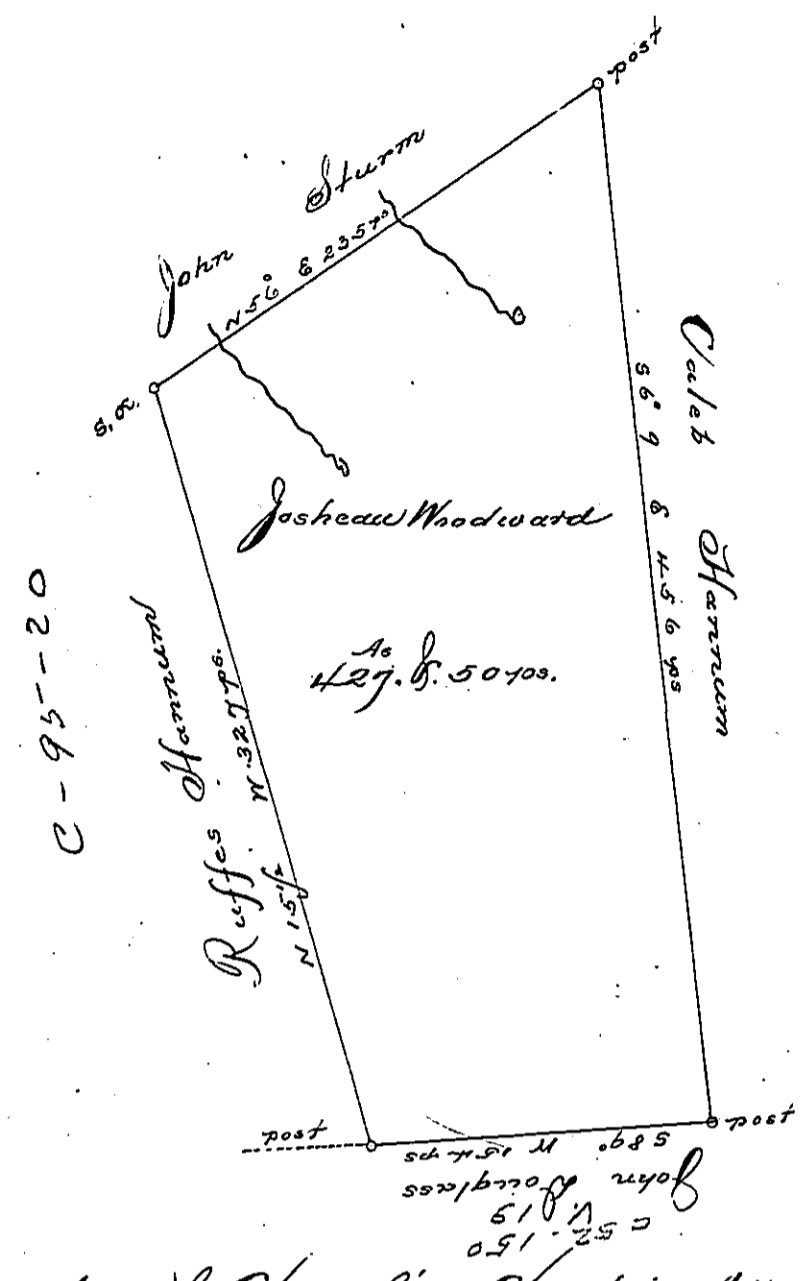 post
John Sturm
N 56° E 235 ps
S.O.
Caleb Hannum
S 6° E 456 ps
Josheaw Woodward
As
427. &. 50 ps.
Ruffes Hannum
N 15½ W 327 ps.
C-95--20
post
post
S 89° W 154 ps
John Douglass
C 52.150